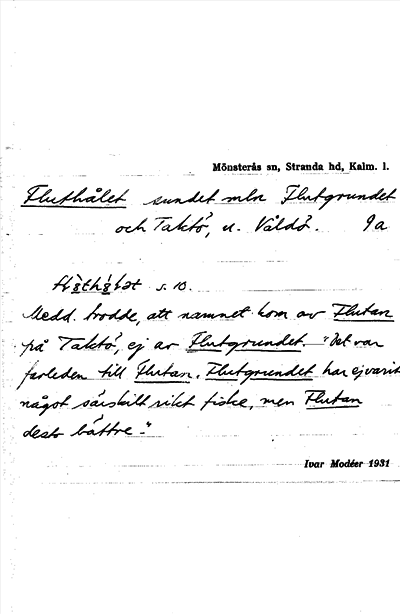 Mönsterås sn, Stranda hd, Kalm. l.
Fluthålet sundet mln Flutgrundet
och Taktö, u. Våldö. 9a
s. 10.
Medd. trodde, att namnet kom av Flutan
på Taktö, ej av Flutgrundet. "Det var
farleden till Flutan. Flutgrundet har ej varit
något särskilt rikt fiske, men Flutan
desto bättre."
Ivar Modéer 1931